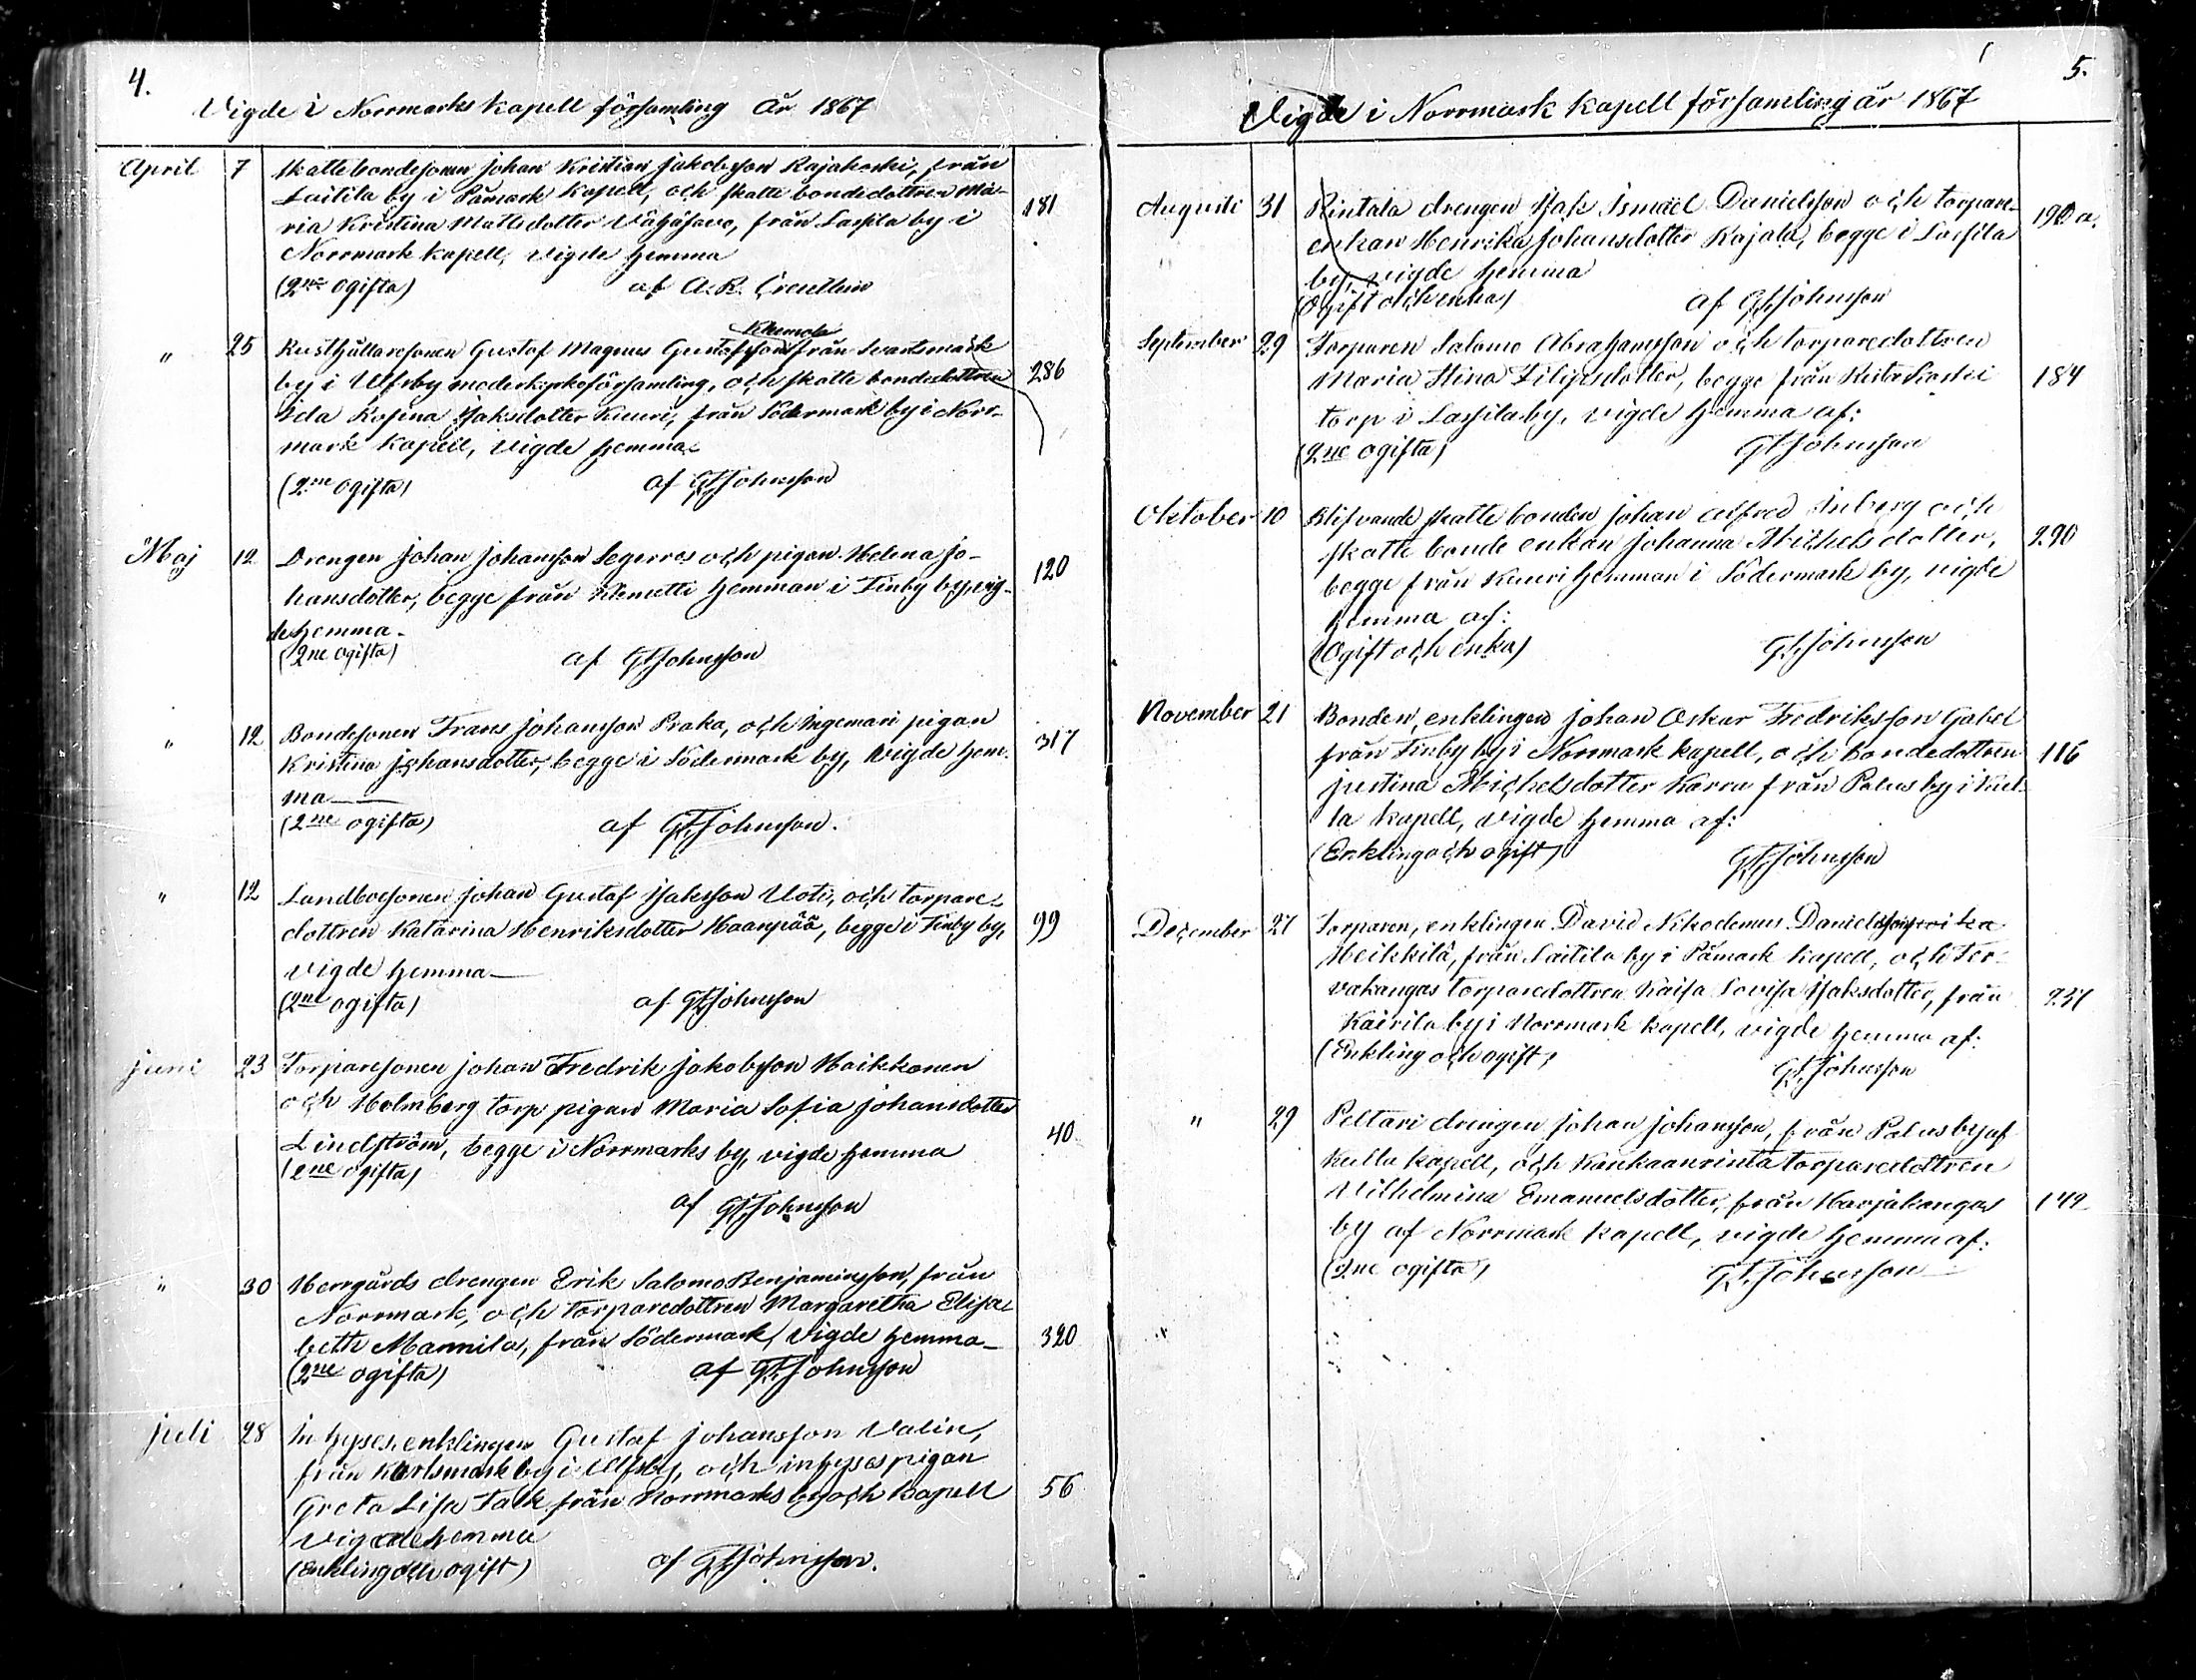 4.
Vigde i Norrmarks kapell församling år 1867
April 7 Skattebondesonen Johan Kristian Jakobsson Rajakoski, från
Laitila by i Påmark kapell, och skattebondedottren Ma-
ria Kristina Mattsdotter Vähäsavo, från Lassila by i
Norrmark kapell, vigde hemma 181
(2ne ogifta) af A. R.
Klemola
" 25 Rusthållaresonen Gustaf Magnus Gustafsson från Svartsmark
by i Ulfsby moderkyrkoförsamling, och skattebondedottren 286
Ida Rosina Isaksdotter Kuuri, från Södermark by i Norr-
mark kapell, vigde hemma
(2ne ogifta) af G F Johnsson
Maj 12 Drengen Johan Johansson Segerros och pigan Helena Jo-
hansdotter, begge från Klemetti hemman i Finby by, vig- 120
de hemma.
(2ne ogifta) af G F Johnsson
" 12 Bondesonen Frans Johansson Praka, och Ingemari pigan
Kristina Johansdotter, begge i Södermark by, vigde hem- 317
ma
(2ne ogifta) af G F Johnsson.
" 12 Landboesonen Johan Gustaf Isaksson Uoti, och torpare-
dottren Katarina Henriksdotter Haanpää, begge i Finby by, 99
vigde hemma
(2ne ogifta) af G F Johnsson
Juni 23 Torparesonen Johan Fredrik Jakobsson Haikkonen
och Holmberg torp pigan Maria Sofia Johansdotter
Lindström, begge i Norrmarks by, vigde hemma 40
(2ne ogifta)
af G F Johnsson
" 30 Herrgårds drengen Erik Salomo Benjaminsson, från
Norrmark, och torparedottren Margaretha Elisa-
beth Mannila, från Södermark, vigde hemma 320
(2ne ogifta) af G F Johnsson
Juli 28 Inhyses enklingen Gustaf Johansson Valin,
från Karlsmark by i Ulfsby, och inhysespigan
Greta Lisa Falk från Norrmarks by och kapell 56
vigde hemma
(Enkling och ogift) af G F Johnsson.
5.
Vigde i Norrmark kapell församling år 1867
Augusti 31 Rintala drengen Isak Ismael Danielsson och torpare-
enkan Henrika Johansdotter Rajala, begge i Lassila 190 a.
by, vigde hemma
(Ogift och enka) af G F Johnsson
September 29 Torparen Salomo Abrahamsson och torparedottren
Maria Stina Filipsdotter, begge från 184
torp i Lassila by, vigde hemma af:
(2ne ogifta) G F Johnsson
Oktober 10 Blifvande skattebonden Johan Alfred och
skattebonde enkan Johanna Michelsdotter, 290
begge från Kuuri hemman i Södermark by, vigde
hemma af:
(Ogift och enka) G F Johnsson
November 21 Bonden, enklingen Johan Oskar Fredriksson Gabel
från Finby by i Norrmark kapell, och bondedottren 116
Justina Michelsdotter Karru från Palus by i Kul-
la kapell, vigde hemma af:
(Enkling och ogift) G F Johnsson
December 27 Torparen, enklingen David Nikodemus Danielsson
Heikkilä, från Laitila by i Påmark kapell, och Ter-
vakangas torparedottren Kaisa Lovisa Isaksdotter, från 237
Kairila by i Norrmark kapell, vigde hemma af:
(Enkling och ogift) G F Johnsson
" 29 Peltari drengen Johan Johansson, från Palus by af
Kulla kapell, och Kankaanrinta torparedottren
Vilhelmina Emanuelsdotter, från Harjakangas 142
by af Norrmark kapell, vigde hemma af:
(2ne ogifta) G F Johnsson